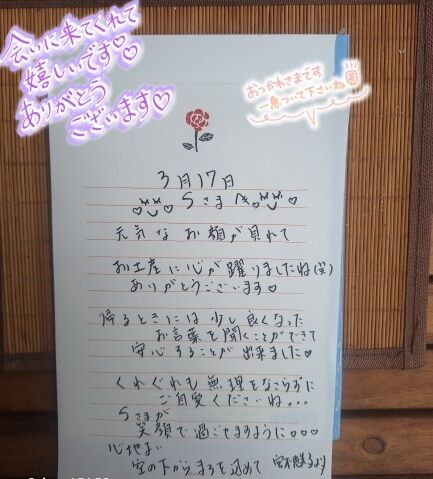 会いに来てくれて
嬉しいです♡
ありがとう
ございます♡
おつかれさまです
一息ついて下さいね
3月17日
Sさまへ
元気なお顔が見れて
お土産に心が躍りましたね(笑)
ありがとうございます♡
帰るときには少し良くなった
お言葉を聞くことができて
安心することが出来ました♡
くれぐれも無理をなさらずに
ご自愛くださいね...
Sさまが
笑顔で過ごせますように♡♡♡
心地よい
空の下からまろを込めて
より